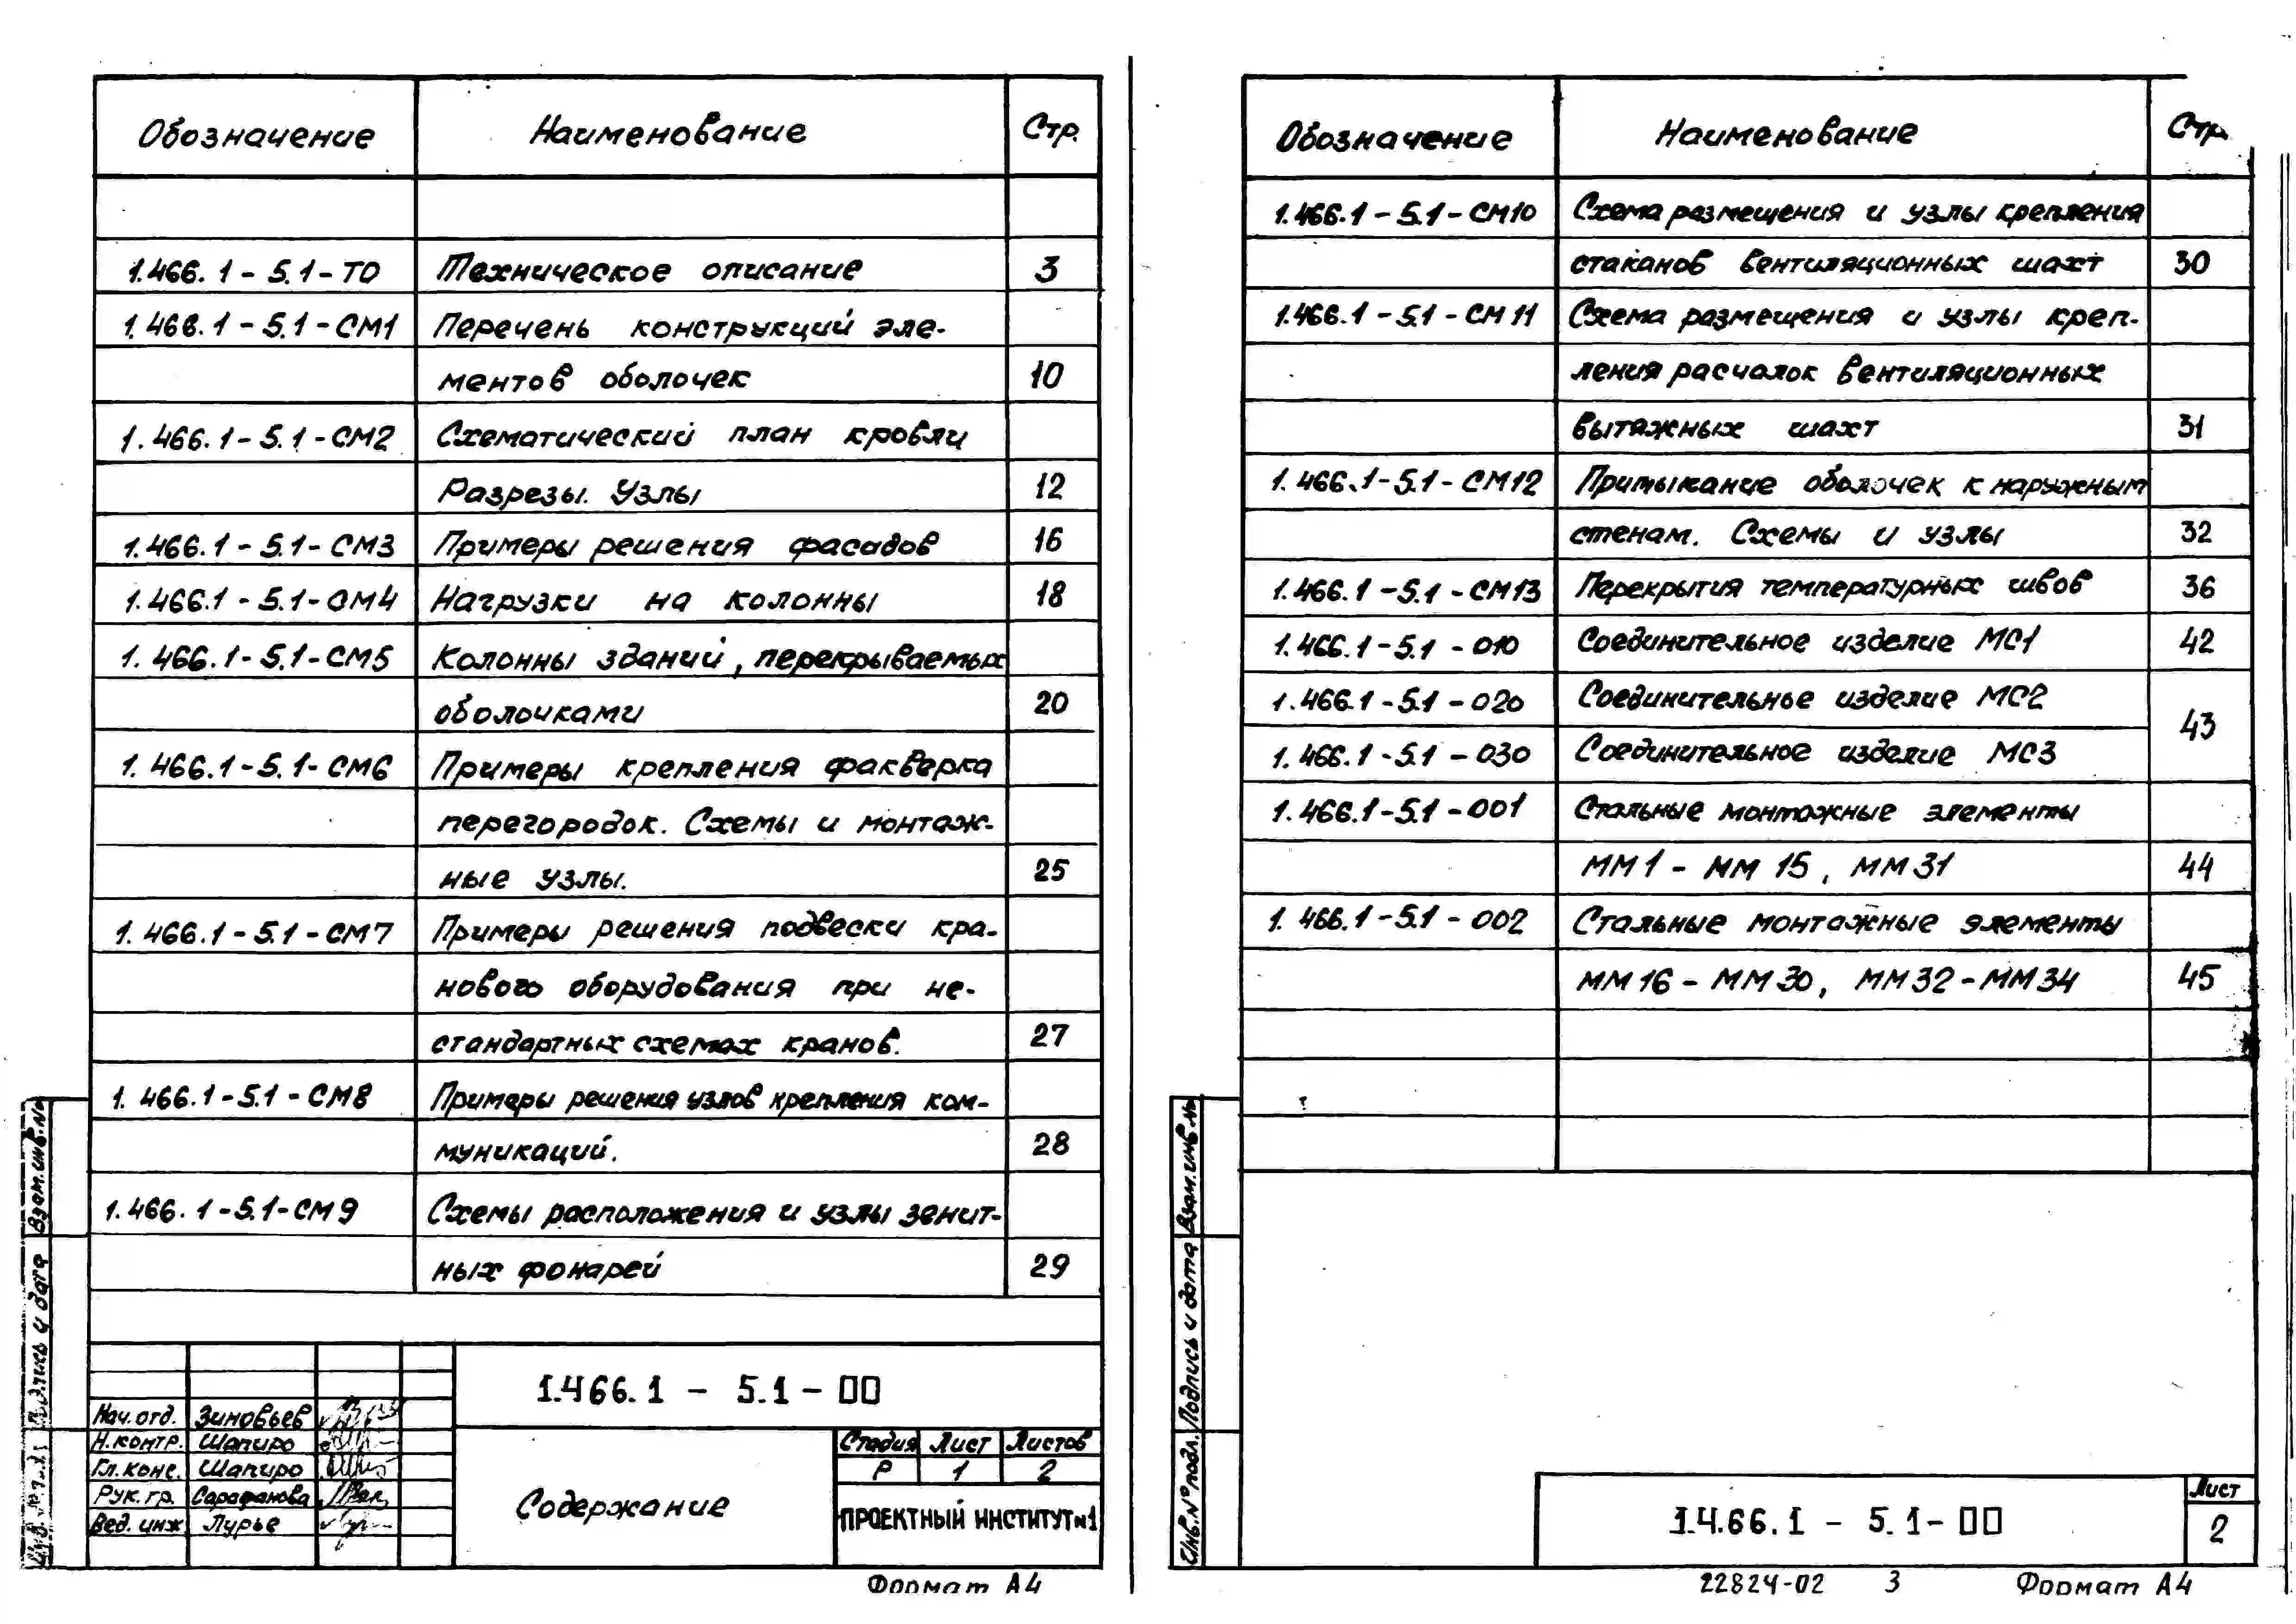 Обозначение Наименование Стр.
1.466.1-5.1-ТО Техническое описание 3
1.466.1-5.1-СМ1 Перечень конструкций эле-
ментов оболочек 10
1.466.1-5.1-СМ2 Схематический план кровли
Разрезы. Узлы 12
1.466.1-5.1-СМ3 Примеры решения фасадов 16
1.466.1-5.1-СМ4 Нагрузки на колонны 18
1.466.1-5.1-СМ5 Колонны зданий, перекрываемых
оболочками 20
1.466.1-5.1-СМ6 Примеры крепления фахверка
перегородок. Схемы и монтаж-
ные узлы. 25
1.466.1-5.1-СМ7 Примеры решения подвески кра-
нового оборудования при не-
стандартных схемах кранов. 27
1.466.1-5.1-СМ8 Примеры решения узлов крепления ком-
муникаций. 28
1.466.1-5.1-СМ9 Схемы расположения и узлы зенит-
ных фонарей 29
1.466.1-5.1-00
Нач.отд. Зиновьев
Н.контр. Шапиро
Гл.конс. Шапиро
Рук.гр. Сарафанова
Вед.инж Лурье
Содержание
Стадия Лист Листов
Р 1 2
ПРОЕКТНЫЙ ИНСТИТУТ №1
Формат А4
Взам.инв.№
Подпись и дата
Инв.№ подл.
Обозначение Наименование Стр.
1.466.1-5.1-СМ10 Схема размещения и узлы крепления
стаканов вентиляционных шахт 30
1.466.1-5.1-СМ11 Схема размещения и узлы креп-
ления расчалок вентиляционных
вытяжных шахт 31
1.466.1-5.1-СМ12 Примыкание оболочек к наружным
стенам. Схемы и узлы 32
1.466.1-5.1-СМ13 Перекрытия температурных швов 36
1.466.1-5.1-010 Соединительное изделие МС1 42
1.466.1-5.1-020 Соединительное изделие МС2 43
1.466.1-5.1-030 Соединительное изделие МС3
1.466.1-5.1-001 Стальные монтажные элементы
ММ1-ММ15, ММ31 44
1.466.1-5.1-002 Стальные монтажные элементы
ММ16-ММ30, ММ32-ММ34 45
Взам.инв.№
Подпись и дата
Инв.№ подл.
1.466.1-5.1-00
Лист
2
22824-02 3 Формат А4